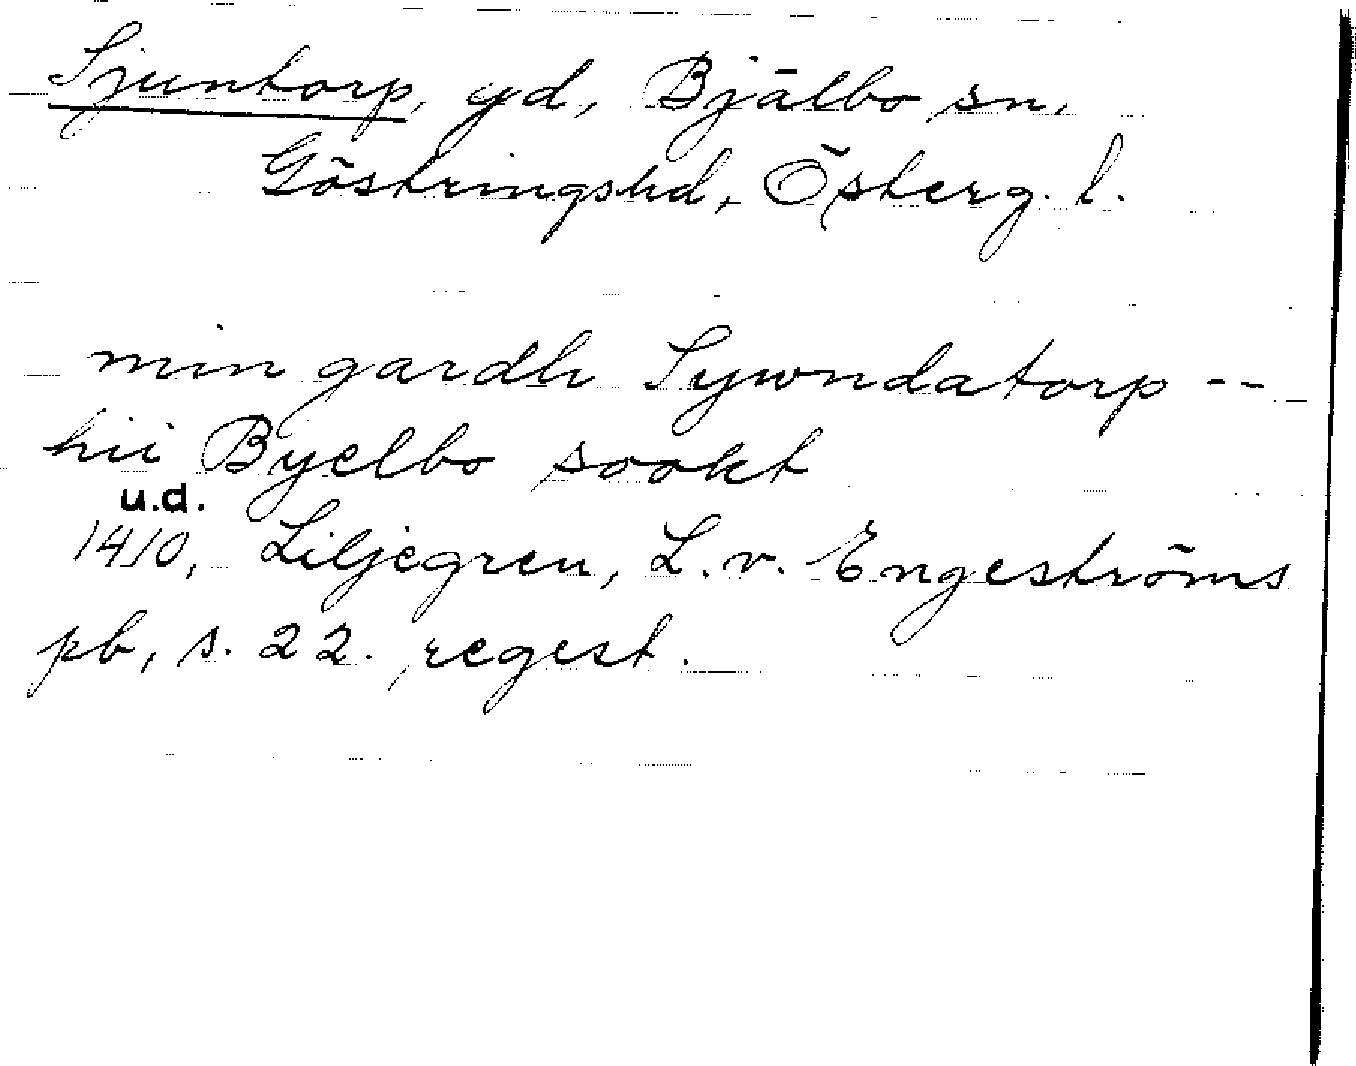 Sjuntorp, gd, Bjälbo sn,
Göstringshd, Österg. l.
min gardh Sywndatorp --
hii Byelbo sookt
u.d.
1410, Liljegren, L. v. Engeströms
pb, s. 22. regest.